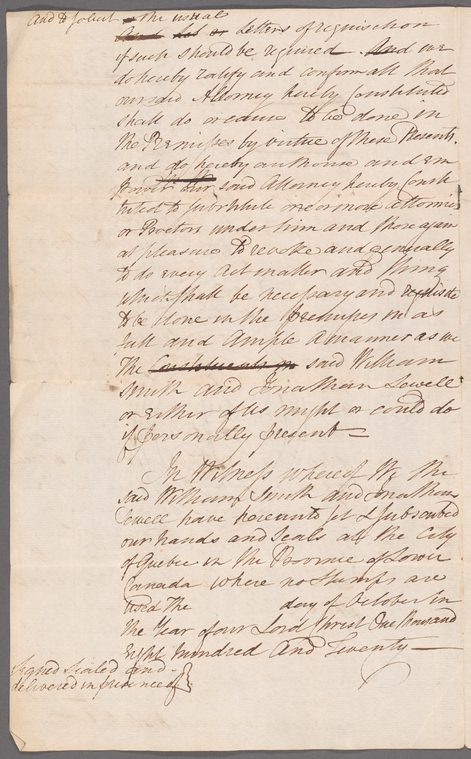 and to solicit the usual
Letters of requisition
if such should be required. And we
do hereby ratify and confirm all that
our said Attorney hereby Constituted
shall do or cause to be done in
the Premisses by virtue of these Presents.
and do hereby authorise and em
power our said Attorney hereby Consti
tuted to substitute one or more attornies
or Proctors under him and them again
at pleasure to revoke and generally
to do every act matter and thing
what shall be necessary and requisite
to be done in the Premisses in as
full and Ample a manner as we
the Constituents or said William
Smith and Jonathan Sewell
or Either of Us might or could do
if personally present —
In Witness whereof We the
said William Smith and Jonathan
Sewell have hereunto set & subscribed
our hands and seals at the City
of Quebec in the Province of Lower
Canada where no Stamps are
used the day of October in
the Year of our Lord Christ One thousand
Eight Hundred And Twenty —
Signed Sealed and
delivered in presence of }